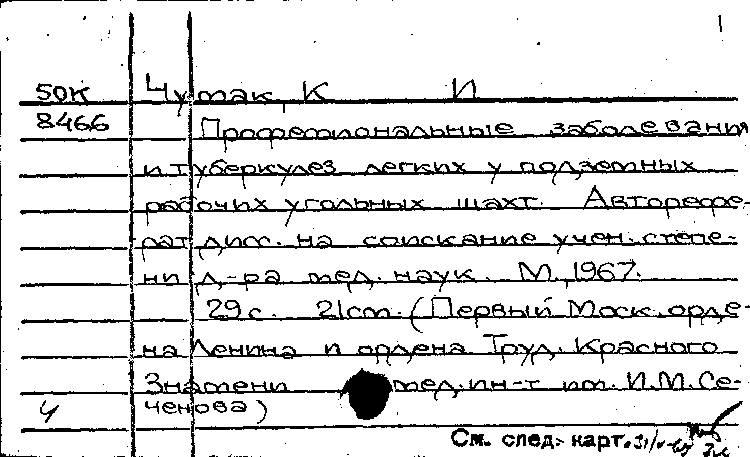 1
50К Чумак, К И
8466 Профессиональные заболевания
и туберкулез легких у подземных
рабочих угольных шахт. Авторефе-
рат дис. на соискание учен. степе-
ни д-ра мед. наук. М., 1967.
29 с. 21 cm. (Первый Моск. орде-
на Ленина и ордена Труд. Красного
Знамени мед. ин-т им. И.М. Се-
ч ченова)
См. след. карт.